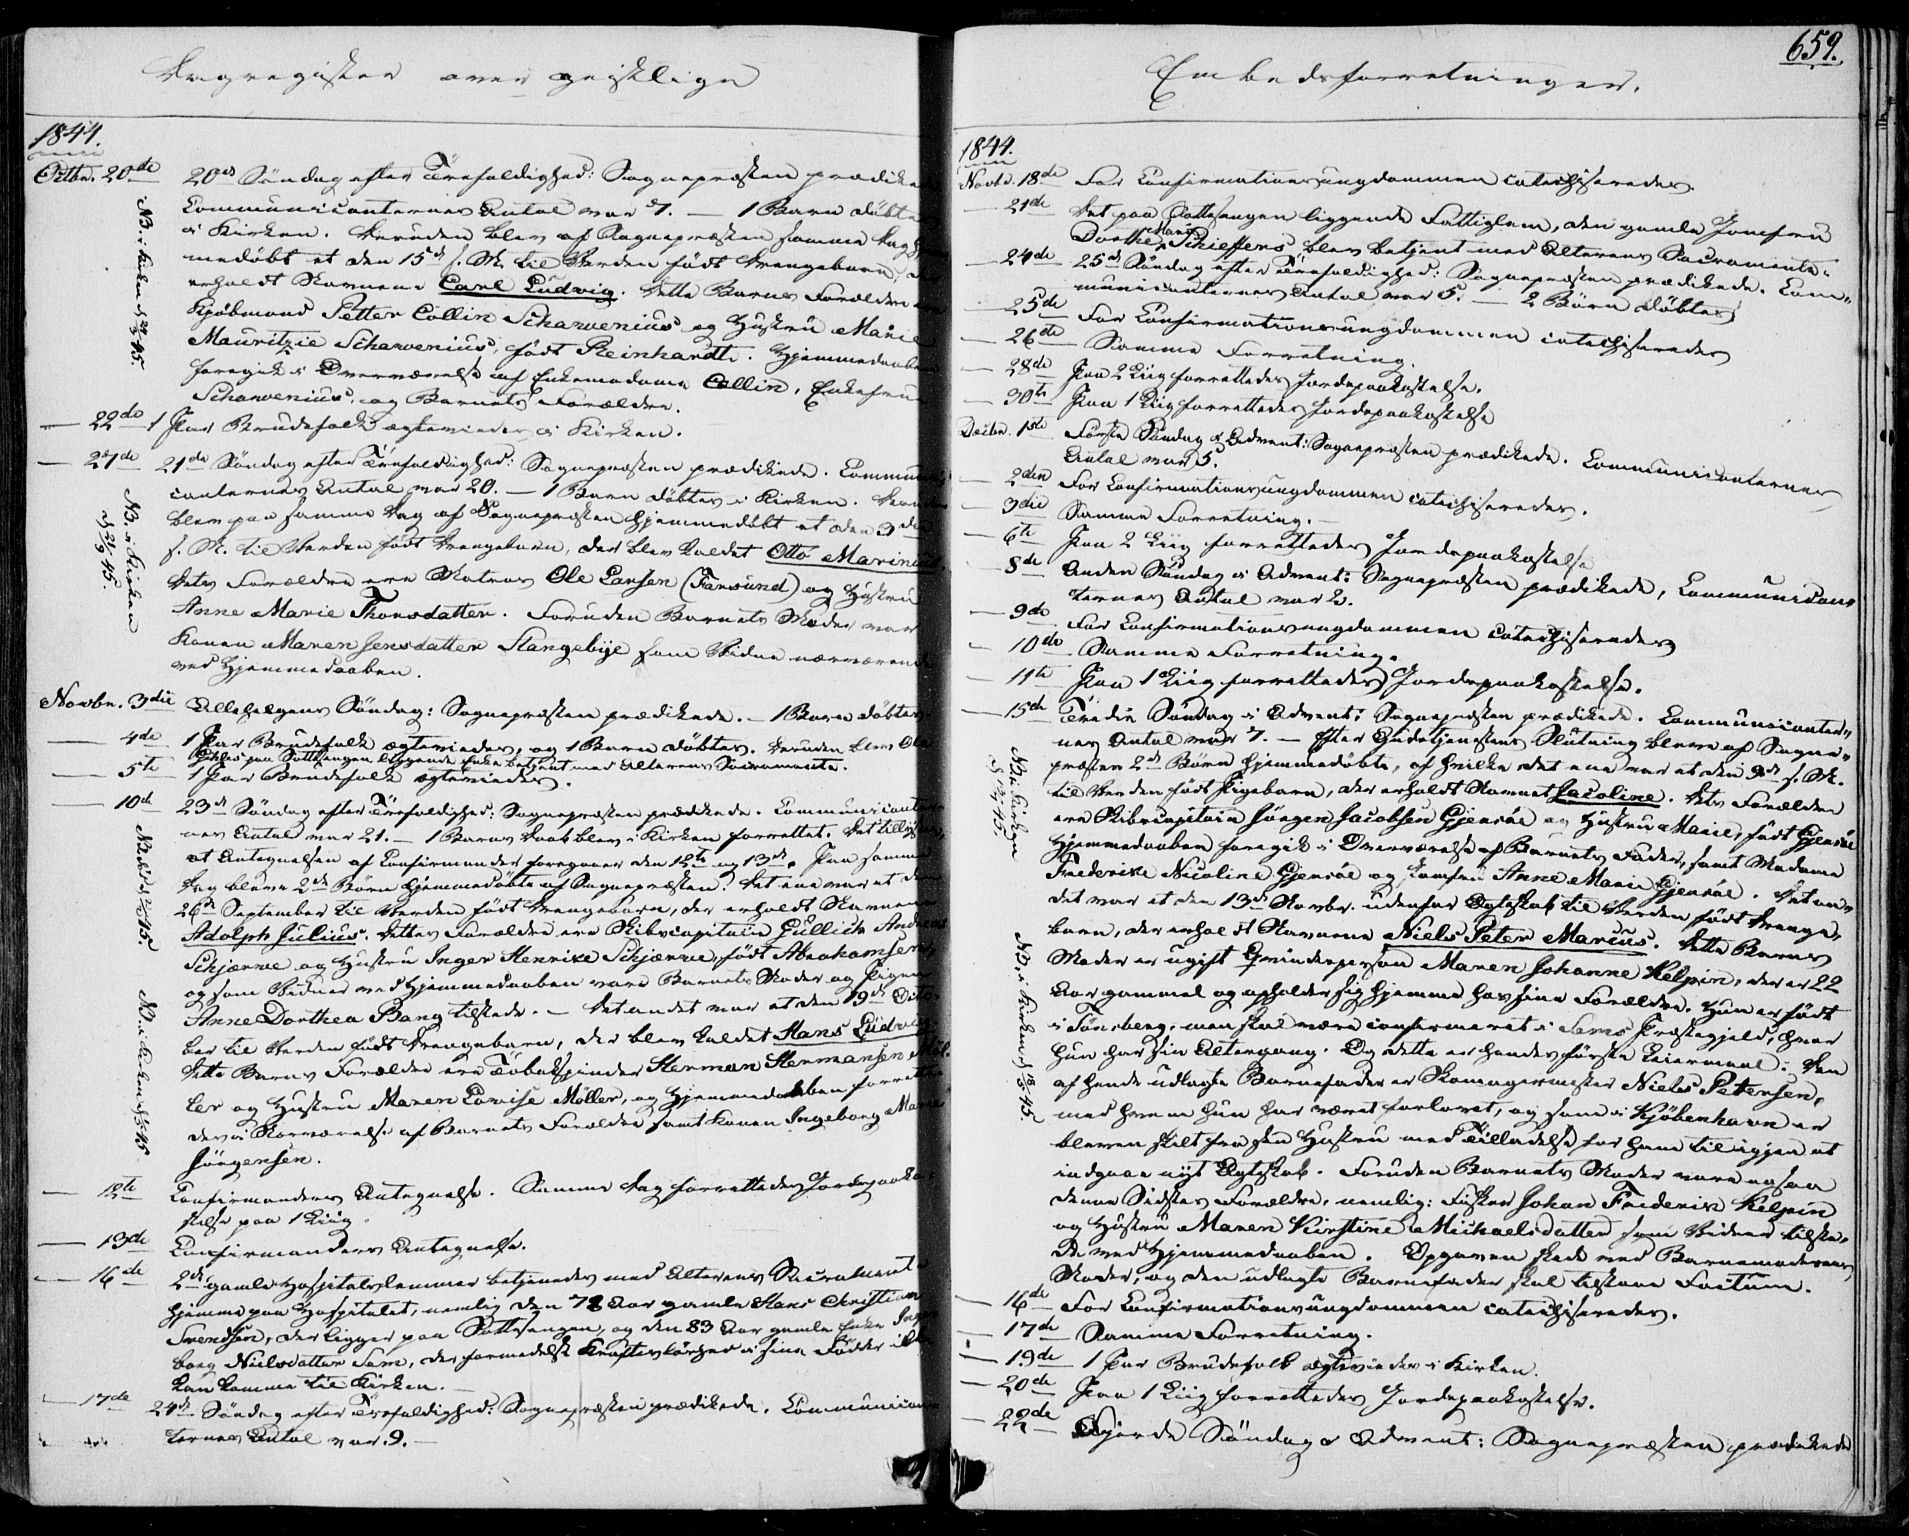 Dagregister over geistlige
1844.
Octbr. 20de 20de Søndag efter Trefoldighed: Sognepræsten prædikede
Communicanternes Antal var 7. — 1 Barn døbtes
i Kirken. Desuden blev af Sognepræsten samme Dag hjem-
medøbt et den 15de f. M. til Verden født Drengebarn, der
erholdt Navnene Carl Ludvig. Dette Barns Forældre ere
Kjøbmand Petter Collin Scharvenius og Hustru Marie
Mauritzie Scharvenius, født Reinhardt. Hjemmedaaben
foregik i Overværelse af Enkemadame Collin, Enkefrue
Scharvenius, og Barnets Forældre.
NB. i Kirken d. 45.
— 22de 1 Par Brudefolk ægteviedes i Kirken.
— 27de 21de Søndag efter Trefoldighed: Sognepræsten prædikede. Communi-
canternes Antal var 20. — 1 Barn døbtes i Kirken. Desuden
blev paa samme Dag af Sognepræsten hjemmedøbt et den 3die
f. M. til Verden født Drengebarn, der blev kaldet Otto Marinius.
Dets Forældre ere Matros Ole Larsen (Farsund) og Hustru
Anne Marie Thorsdatter. Foruden Barnets Moder var
Konen Maren Jensdatter Stangebye som Vidne nærværende
ved Hjemmedaaben.
NB. i Kirken
d. 21/9 45.
Novbr. 3die Allehelgens Søndag: Sognepræsten prædikede. — 1 Barn døbtes.
— 4de 1 Par Brudefolk ægteviedes, og 1 Barn døbtes. Desuden blev Ole
paa Sottesengen liggende Enke betjent med Alterens Sacramente.
— 5te 1 Par Brudefolk ægteviedes.
— 10de 23de Søndag efter Trefoldighed: Sognepræsten prædikede. Communicanter-
nes Antal var 21. — 1 Barns Daab blev i Kirken forrettet. Det tillystes
at Antegnelsen af Confirmander foregaaer den 12te og 13de. Paa samme
Dag bleve 2de Børn hjemmedøbte af Sognepræsten. Det ene var et den
26de September til Verden født Drengebarn, der erholdt Navnene
Adolph Julius. Dettes Forældre ere Skibscapitain Gullich Andreas
Schjærve og Hustru Inger Henrike Schjærve, født Abrahamsen,
og som Vidner ved Hjemmedaaben vare Barnets Moder og Pigen
Anne Dorthea Bang tilstede. — Det andet var et den 19de Octo-
ber til Verden født Drengebarn, der blev kaldet Hans Ludvig.
Dette Barns Forældre ere Tobakspinder Herman Hermansen Møl-
ler og Hustru Maren Lovise Møller, og Hjemmedaaben forrettedes
i Nærværelse af Barnets Forældre samt Konen Ingeborg Marie
Jørgensen.
NB. i Kirken d. 45.
— 12te Confirmanders Antegnelse. Samme Dag forrettedes Jordpaaka-
stelse paa 1 Liig.
— 13de Confirmanders Antegnelse.
— 16de 2de gamle Hospitalslemmer betjenedes med Alterens Sacramente
hjemme paa Hospitalet, nemlig den 78 Aar gamle Hans Christian
Svendsen, der ligger paa Sottesengen, og den 83 Aar gamle Enke Inge-
borg Nielsdatter Sem, der formedelst Kraftesløshed i sine Fødder ikke
kan komme til Kirken.
— 17de 24de Søndag efter Trefoldighed: Sognepræsten prædikede. Communican-
ternes Antal var 9. —
Embedsforretninger.
659.
1844.
Novbr. 18de For Confirmationsungdommen catechiseredes.
— 21de Det paa Sottesengen liggende Fattiglem, den gamle Jomfru
Dorthe Marie Schieffens blev betjent med Alterens Sacramente.
— 24de 25de Søndag efter Trefoldighed: Sognepræsten prædikede. Com-
municanternes Antal var 5. — 2 Børn døbtes.
— 25de For Confirmationsungdommen catechiseredes
— 26de Samme Forretning.
— 28de Paa 2 Liig forrettedes Jordpaakastelse.
— 30te Paa 1 Liig forrettedes Jordpaakastelse
Decbr. 1ste Første Søndag i Advent: Sognepræsten prædikede. Communicanternes
Antal var 5.
— 2den For Confirmationsungdommen catechiseredes.
— 3die Samme Forretning. —
— 6te Paa 2 Liig forrettedes Jordpaakastelse
— 8de Anden Søndag i Advent: Sognepræsten prædikede, Communican-
ternes Antal var 2.
— 9de For Confirmationsungdommen catechiseredes
— 10de Samme Forretning.
— 11te Paa 1 Liig forrettedes Jordpaakastelse.
— 15de Tredie Søndag i Advent: Sognepræsten prædikede. Communicanter-
nes Antal var 7. — Efter Gudstjenestens Slutning bleve af Sogne-
præsten 2de Børn hjemmedøbte, af hvilke det ene var et den 9de f. M.
til Verden født Pigebarn, der erholdt Navnet Jacoline. Dets Forældre
ere Skibscapitain Jörgen Jacobsen Gjersøe og Hustru Marie, født Gjersøe
Hjemmedaaben foregik i Overværelse af Barnets Fader, samt Madame
Frederike Nicoline Gjersøe og Jomfru Anne Marie Gjersøe. Det an-
det var et den 13de Novbr. udenfor Ægteskab til Verden født Drenge-
barn, der erholdt Navnene Niels Peter Marcus. Dette Barns
Moder er ugift Qvindeperson Maren Johanne Kelpin, der er 22
Aar gammel og opholder sig hjemme hos sine Forældre. Hun er født
i Tønsberg, men skal være confirmeret i Sems Præstegjeld, hvor
hun har sin Altergang. Og dette er hendes første Leiermaal. Den
af hende udlagte Barnefader er Skomagermester Niels Petersen,
med hvem hun har været forlovet, og som i Kjøbenhavn er
bleven skilt fra sin Hustru med Tilladelse for ham til igjen at
indgaae nyt Ægteskab. Foruden Barnets Moder vare ogsaa
denne Sidstes Forældre, nemlig: Fisker Johan Frederik Kelpin
og Hustru Maren Kirstine Michaelsdatter som Vidner tilste-
de ved Hjemmedaaben. Opgaven skede ved Barnemoderens
Moder, og den udlagte Barnefader skal tilstaae Factum.
NB. i Kirken
45.
NB. i Kirken d. 45.
— 16de For Confirmationsungdommen catechiseredes.
— 17de Samme Forretning.
— 19de 1 Par Brudefolk ægteviedes i Kirken.
— 20de Paa 1 Liig forrettedes Jordpaakastelse.
— 22de Fjerde Søndag i Advent: Sognepræsten prædikede